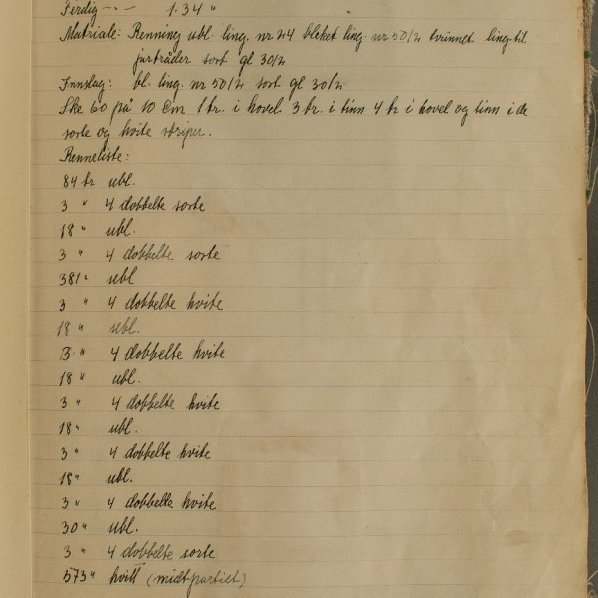 Ferdig - - 1.34 "
Matriale: Renning ubl. ling. nr 24 bleket ling. nr 50/2 tvinnet ling til
jurtråder sort gl 30/2
Innslag: bl. ling. nr 50/2 sort gl 30/2
Ske 60 på 10 Cm 1 tr. i hovel 3 tr. i tinn 4 tr i hovel og tinn i de
sorte og hvite striper.
Renneliste:
84 tr ubl.
3 " 4 dobbelte sorte
18 " ubl.
3 " 4 dobbelte sorte
381 " ubl
3 " 4 dobbelte hvite
18 " ubl.
3 " 4 dobbelte hvite
18 " ubl.
3 " 4 dobbelte hvite
18 " ubl.
3 " 4 dobbelte hvite
18 " ubl.
3 " 4 dobbelte hvite
30 " ubl.
3 " 4 dobbelte sorte
573 " hvitt (midtpartiet)